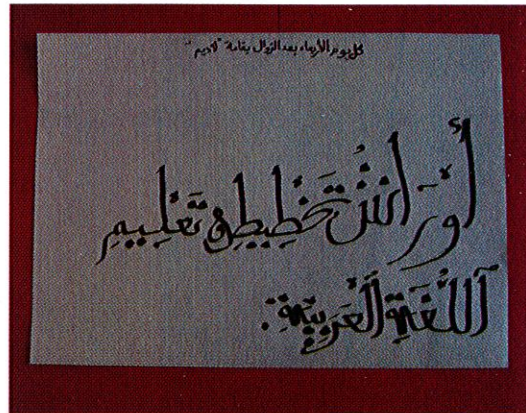 كل يوم الأربعاء بعد الزوال بقاعة "لاديم"
أَوْرَاشُ تَخْطِيطِ و تَعْلِيمِ
اَللُّغَةِ اَلْعَرَبِيَّةِ: